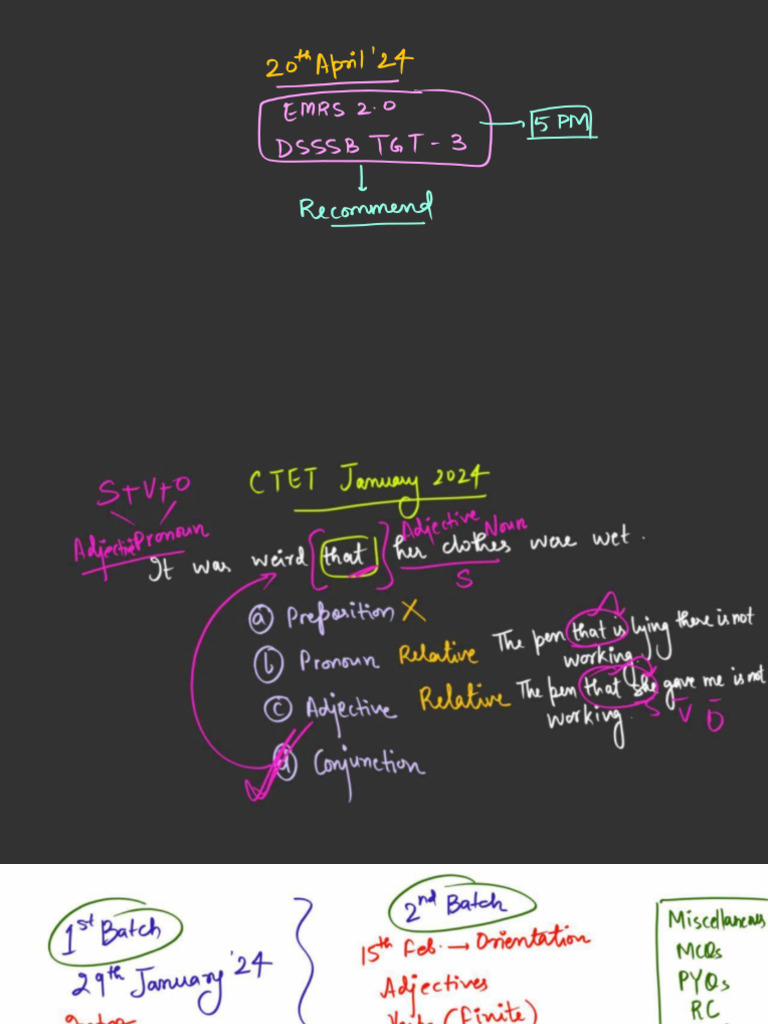 20th April '24
EMRS 2.0
DSSSB TGT - 3
5 PM
Recommend
CTET January 2024
S+V+O
Adjective Pronoun
Adjective Noun
It was weird [that] her clothes were wet.
S
(a) Preposition X
(b) Pronoun Relative
The pen that is lying there is not
working.
A
(c) Adjective Relative
The pen that she gave me is not
working.
S V O
(d) Conjunction
1st Batch
29th January '24
2nd Batch
15th Feb. → Orientation
Adjectives
(Finite)
Miscellaneous
MCQs
PYQs
RC